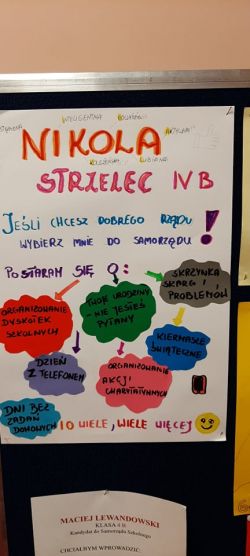 INTELIGENTNA
KOLEŻEŃSKA LUBIANA
NIKOLA
STRZELEC IV B
JEŚLI CHCESZ DOBREGO RZĄDU
WYBIERZ MNIE DO SAMORZĄDU!
POSTARAM SIĘ O:
SKRZYNKA
SKARG I
PROBLEMÓW
TWOJE URODZINY
- NIE JESTEŚ
PYTANY
ORGANIZOWANIE
DYSKOTEK
SZKOLNYCH
KIERMASZE
ŚWIĄTECZNE
DZIEŃ
Z TELEFONEM
ORGANIZOWANIE
AKCJI
CHARYTATYWNYCH
DNI BEZ
ZADAŃ
DOMOWYCH
I O WIELE, WIELE WIĘCEJ
MACIEJ LEWANDOWSKI
KLASA 4 B
Kandydat do Samorządu Szkolnego
CHCIAŁBYM WPROWADZIĆ: